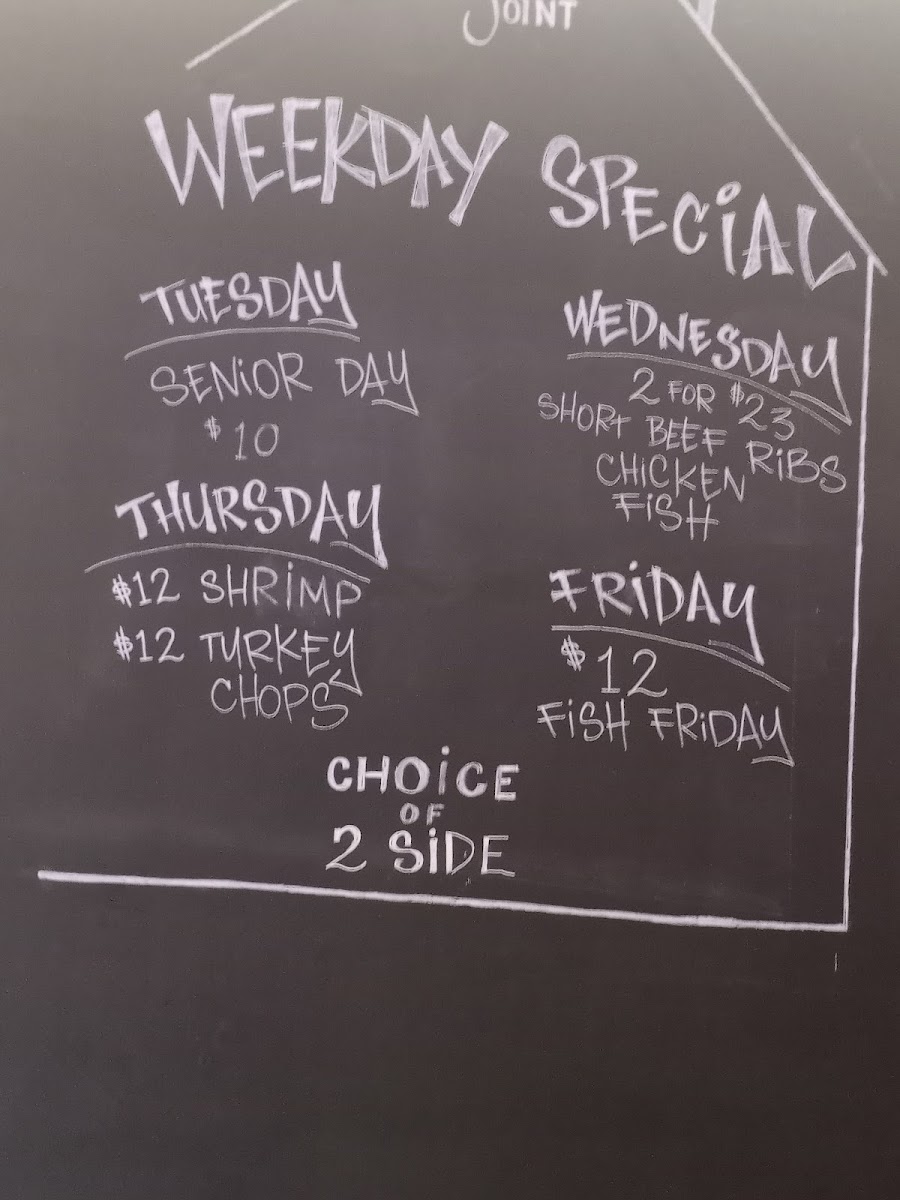 JOINT
WEEKDAY SPECIAL
TUESDAY
SENIOR DAY
$10
WEDNESDAY
2 FOR $23
SHORT BEEF RIBS
CHICKEN
FISH
THURSDAY
$12 SHRIMP
$12 TURKEY
CHOPS
FRIDAY
$12
FISH FRIDAY
CHOICE
OF
2 SIDE